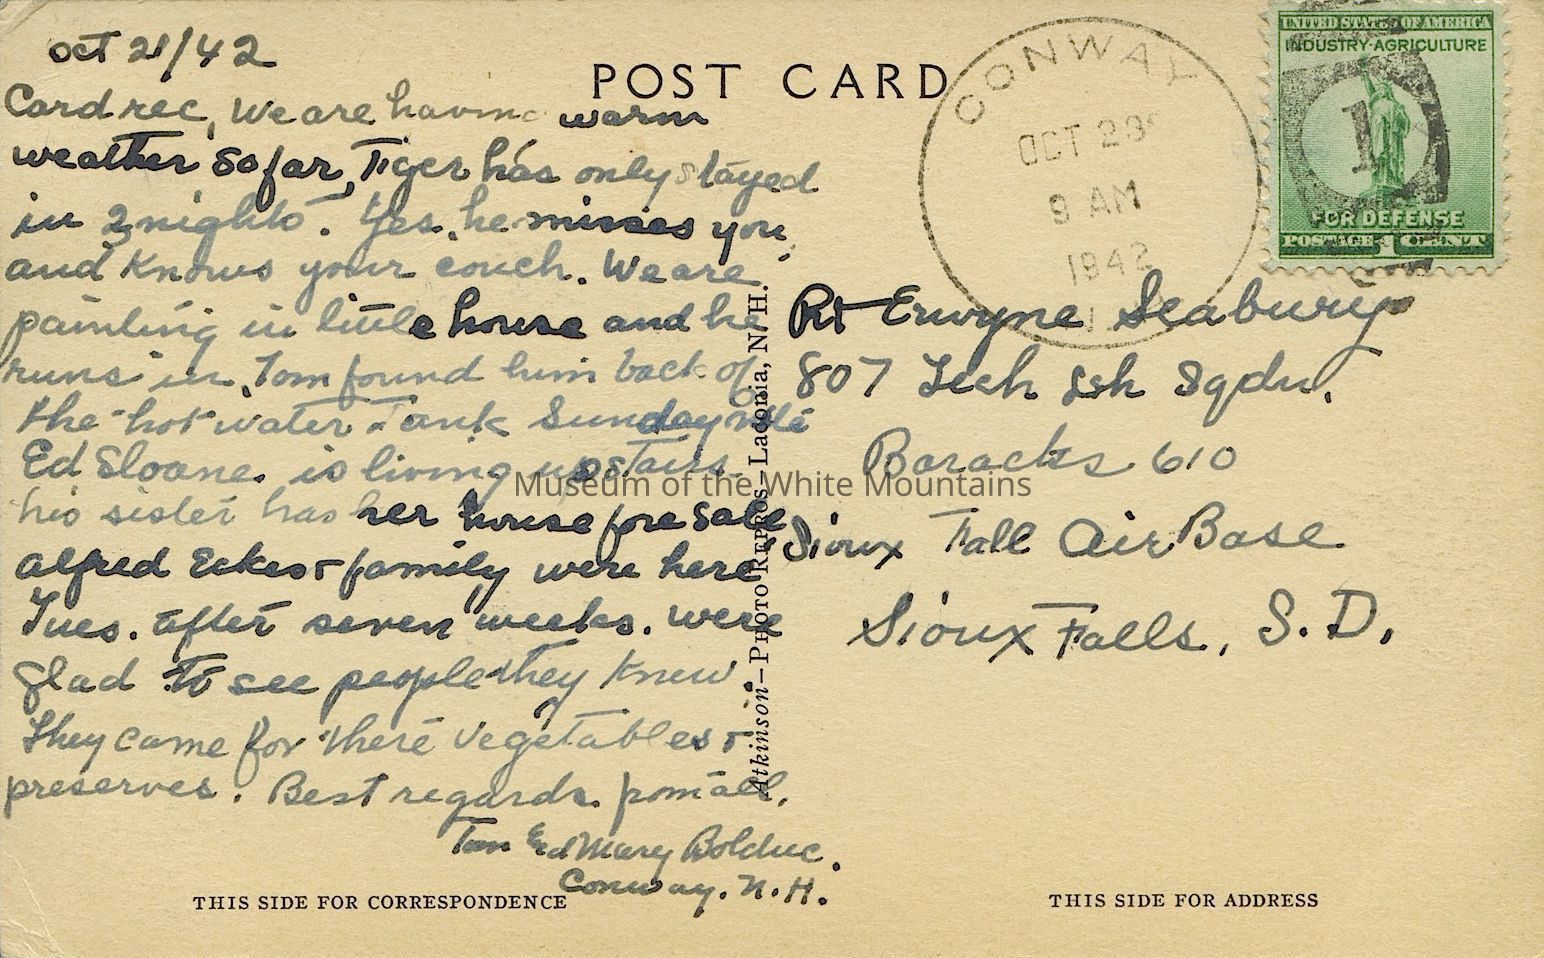 Oct 21/42
Card rec, We are having warm
weather so far, Tiger has only stayed
in 2 nights. Yes, he misses you,
and knows your couch. We are
painting in little house and he
runs in, Tom found him back of
the hot water Tank Sunday nite
Ed Sloane. is living upstairs
his sister has her house fore Sale
alfred Eckes & family were here
Tues. after seven weeks. were
glad to see people they knew.
They came for there vegetables &
preserves. Best regards. from all,
Tom Ed Mary Bolduc.
Conway. N.H.
THIS SIDE FOR CORRESPONDENCE
POST CARD
Atkinson—PHOTO REPROS—Laconia, N. H.
CONWAY
OCT 23
9 AM
1942
UNITED STATES OF AMERICA
INDUSTRY-AGRICULTURE
1
FOR DEFENSE
POSTAGE 1 CENT
Erwyne Seabury
807 Tech Ssh Sqdn.
Baracks 610
Sioux Fall Air Base
Sioux Falls, S.D.
THIS SIDE FOR ADDRESS
Museum of the White Mountains